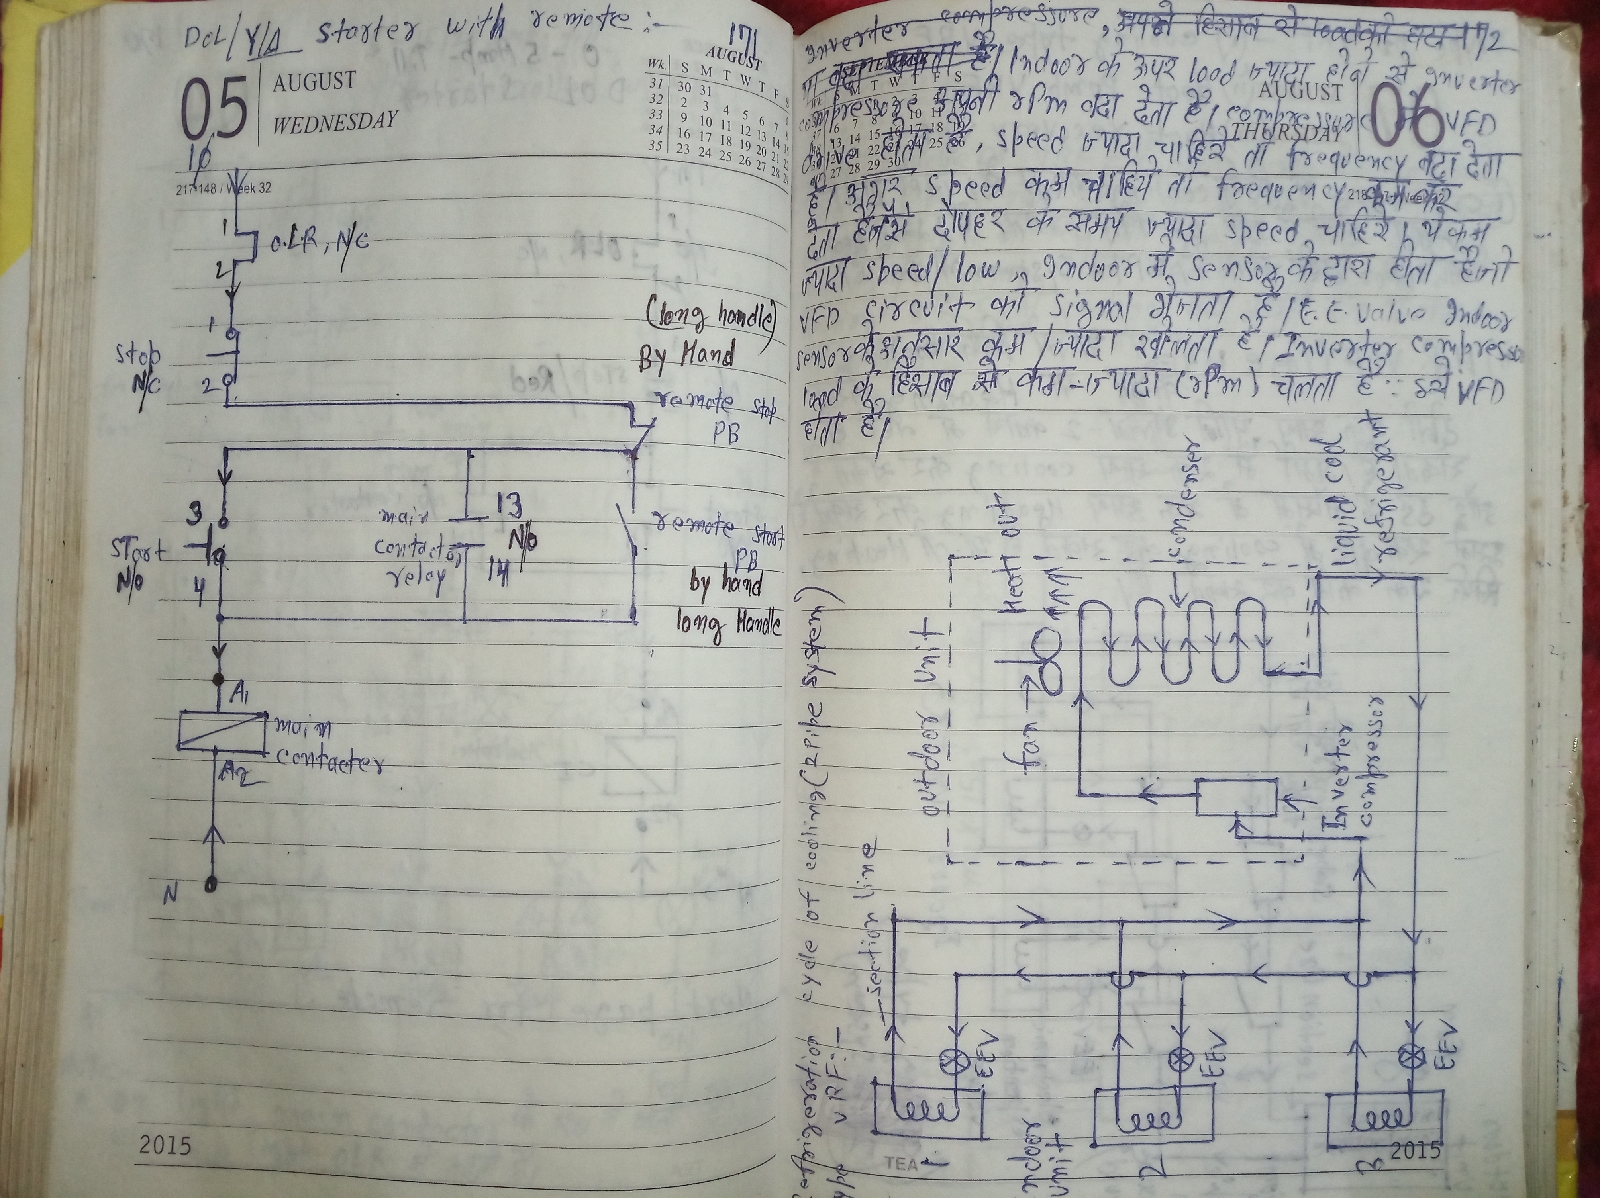 DOL/Y/Δ Starter with remote :-
171
05
AUGUST
WEDNESDAY
AUGUST
Wk S M T W T F S
31 30 31
32 2 3 4 5 6 7 8
33 9 10 11 12 13 14 15
34 16 17 18 19 20 21
35 23 24 25 26 27 28
10
217-148 / Week 32
1
O.L.R, N/C
2
1
Stop
N/C
2
(long handle)
By Hand
remote stop
PB
3
Start
N/O
4
main
contactor
relay
13
N/O
14
remote start
PB
by hand
long Handle
A1
main
contacter
A2
N
2015
Inverter compressure, अपने हिसाब से load को घटा 172
है। Indoor के ऊपर load ज्यादा होने से Inverter
AUGUST
06
THURSDAY
compressore अपनी rPm बढा देता है। compressure में VFD
drive होता है, speed ज्यादा चाहिये तो frequency बढा देता
है। अगर speed कम चाहिये तो frequency कम कर
देता है जैसे दोपहर के समय ज्यादा speed चाहिये। ये कम
ज्यादा speed/low, Indoor में sensor के द्वारा होता है जो
VFD circuit को signal भेजता है। E.E. valve Indoor
sensor के अनुसार कम/ज्यादा खोलता है। Inverter compressor
load के हिसाब से कम-ज्यादा (rPm) चलता है ∵ इसमे VFD
होता है।
Refrigeration cycle of cooling (2 Pipe system)
type VRF:-
outdoor unit
Heat out
fan
condenser
liquid cool
refrigerant
Inverter
compressor
section line
EEV
EEV
EEV
Indoor
unit
1
2
3
TEA
2015